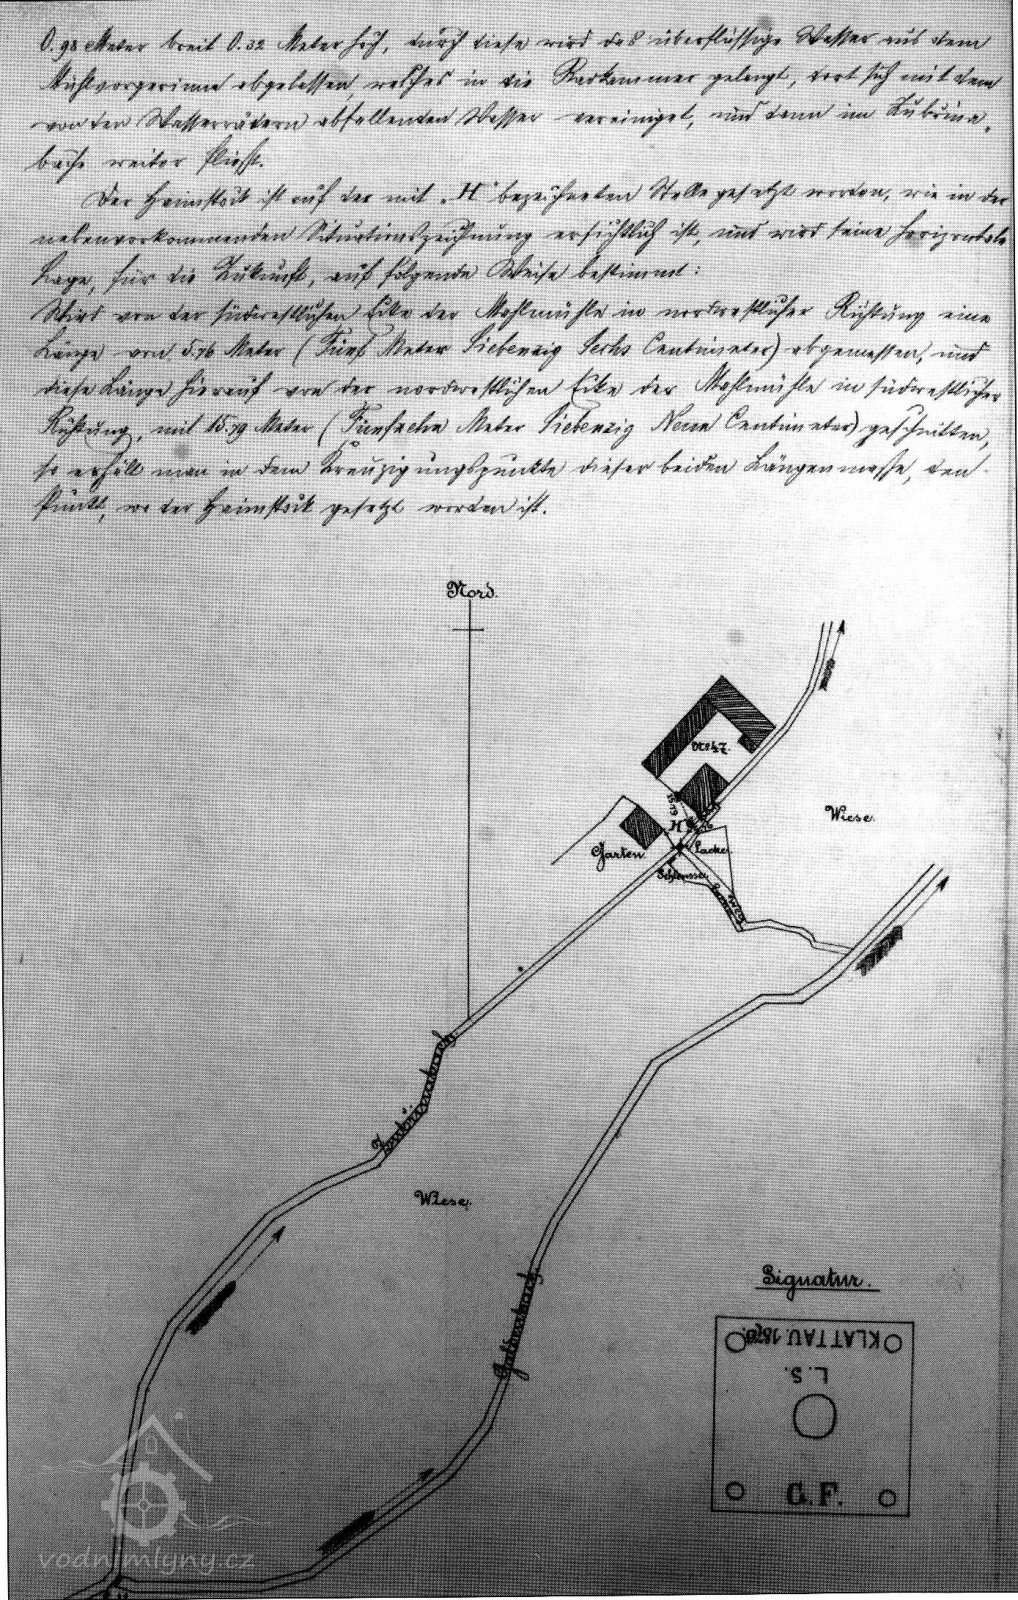 0.98 Meter breit 0.32 Meter hoch, durch diese wird das überflüssige Wasser aus dem
Mühlvorgerinne abgelassen, welches in die Radkammer gelangt, dort sich mit dem
von den Wasserrädern abfallenden Wasser vereiniget, und dann im
bache weiter fliesst.
Der Haimstock ist auf der mit „H" bezeichneten Stelle gesetzt worden, wie in der
nebenvorkommenden Situationszeichnung ersichtlich ist, und wird seine horizontale
Lage, für die Zukunft, auf folgende Weise bestimmt:
Wird von der südwestlichen Ecke der Mahlmühle in nordwestlicher Richtung eine
Länge von 5.76 Meter (Fünf Meter Siebenzig Sechs Centimeter) abgemessen, und
diese Länge hierauf von der nordwestlichen Ecke der Mahlmühle in südwestlicher
Richtung, mit 15.79 Meter (Fünfzehn Meter Siebenzig Neun Centimeter) geschnitten,
so erhält man in dem Kreuzigungspunkte dieser beiden Längenmasse, den
Punkt, wo der Haimstock gesetzt worden ist.
Nord.
No 47.
15.79
H
Wiese.
Garten.
Lacke.
Schleusse.
Wiese.
Signatur.
KLATTAU. 1878.
L.S.
C.F.
vodnimlyny.cz